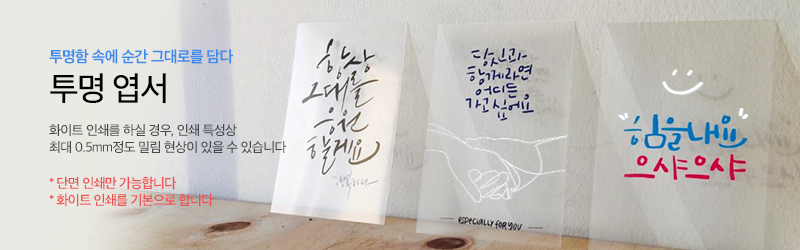 투명함 속에 순간 그대로를 담다
투명 엽서
화이트 인쇄를 하실 경우, 인쇄 특성상
최대 0.5mm정도 밀림 현상이 있을 수 있습니다
* 단면 인쇄만 가능합니다
* 화이트 인쇄를 기본으로 합니다
항상
그대를
응원
할게요
당신과
함께라면
어디든
가고 싶어요
especially FOR YOU
"힘을내요"
으샤으샤